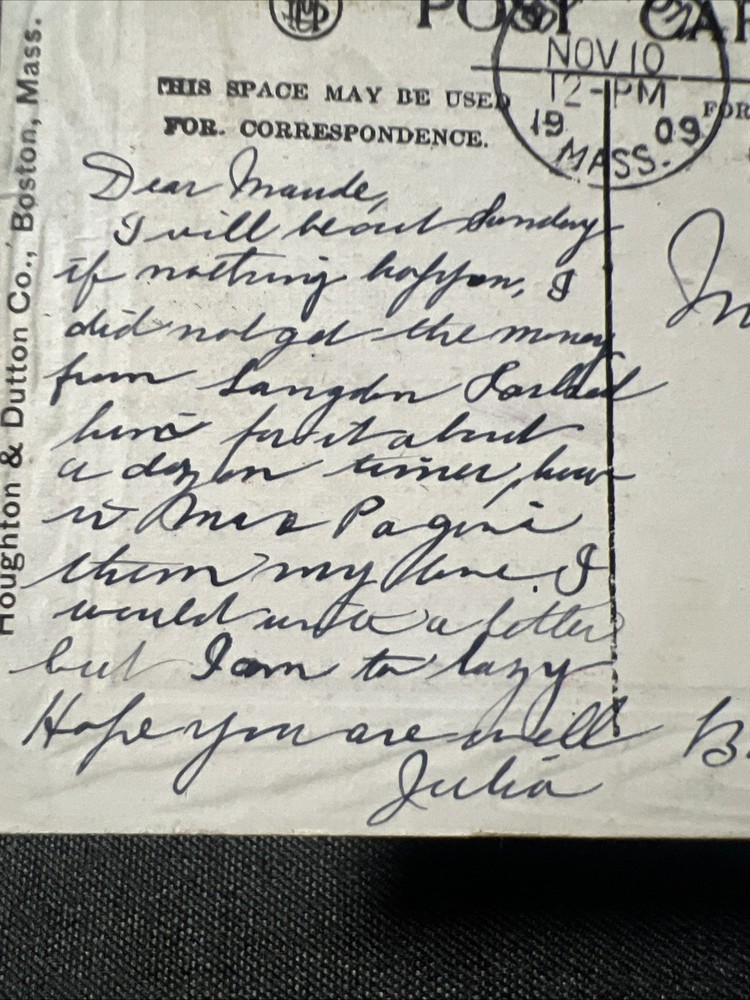 POST CAR
NOV 10
12-PM
19 09
MASS.
THIS SPACE MAY BE USED
FOR. CORRESPONDENCE.
FOR
Houghton & Dutton Co., Boston, Mass.
Dear Maude,
I will be out Sunday
if nothing happen, I
did not get the money
from Langdon I asked
him for it about
a dozen times, how
is Mrs Pagin
them my love. I
would write a letter
but I am to lazy
Hope you are well
Julia